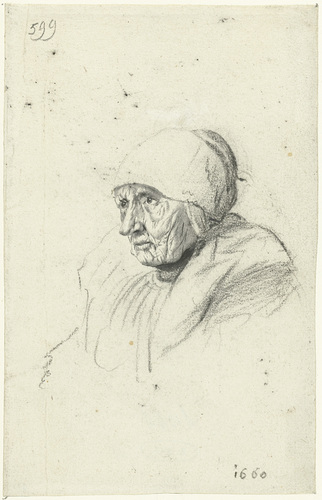 599
1660